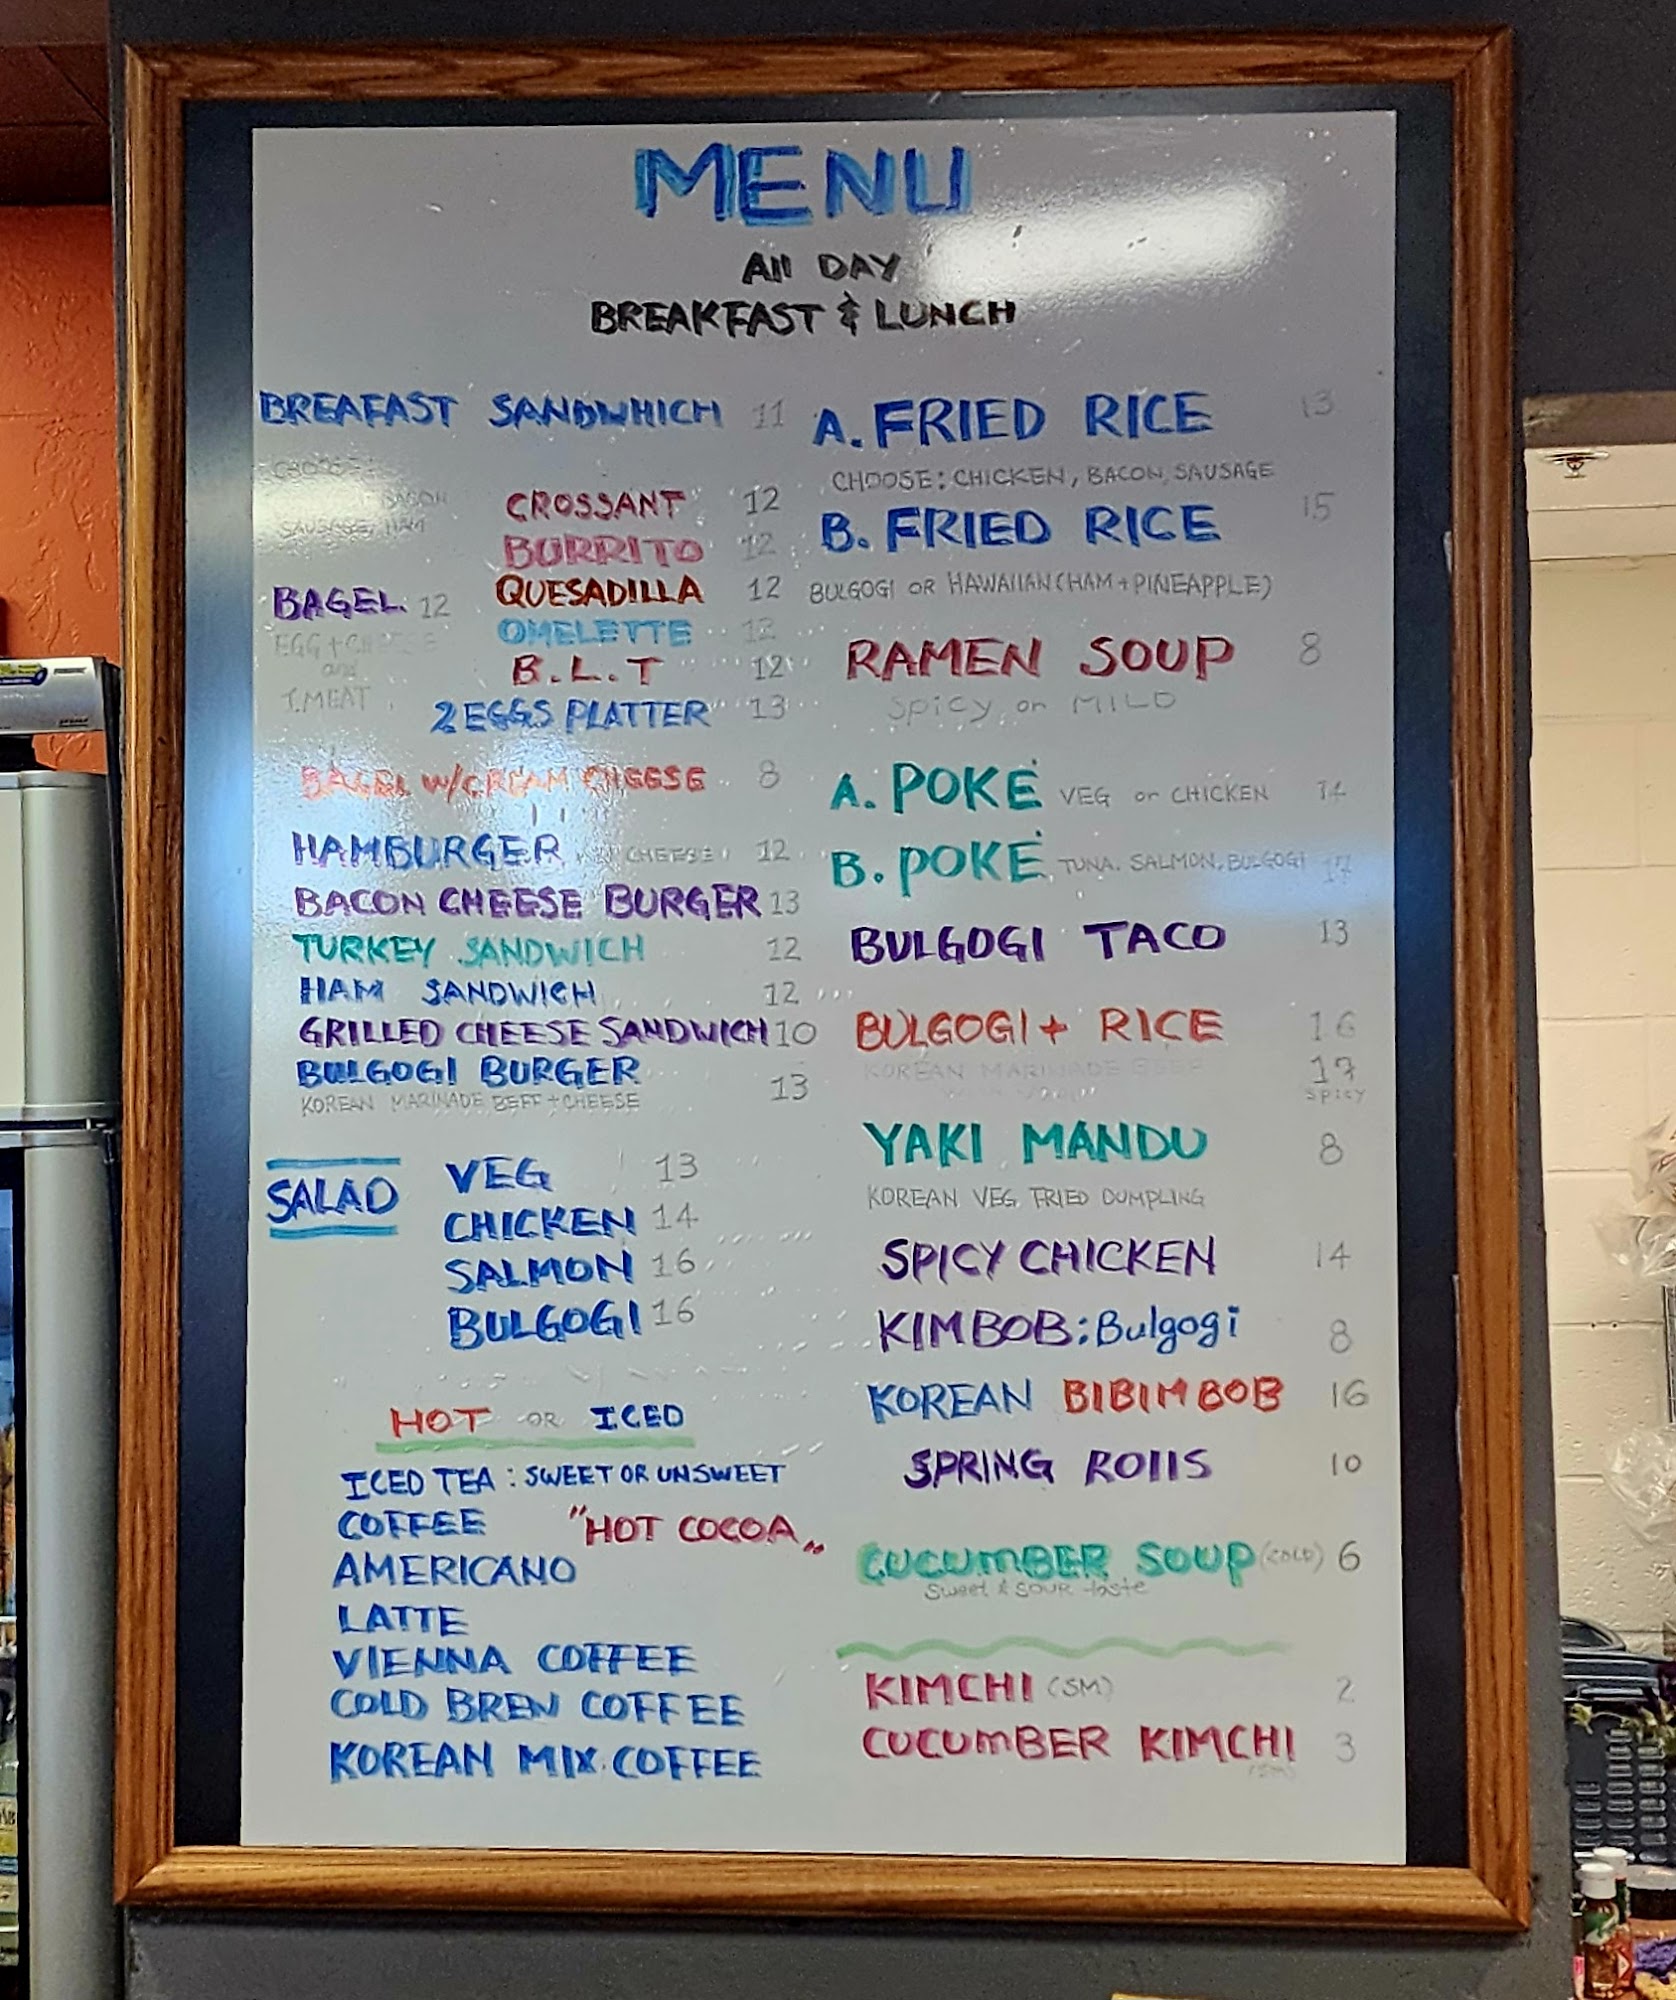 MENU
All DAY
BREAKFAST & LUNCH
BREAFAST SANDWHICH 11
CHOOSE
BACON
SAUSAGE, HAM
CROSSANT 12
BURRITO 12
BAGEL 12
EGG + CHEESE
and
1. MEAT
QUESADILLA 12
OMELETTE 12
B.L.T 12
2 EGGS PLATTER 13
BAGEL W/CREAM CHEESE 8
HAMBURGER CHEESE 12
BACON CHEESE BURGER 13
TURKEY SANDWICH 12
HAM SANDWICH 12
GRILLED CHEESE SANDWICH 10
BULGOGI BURGER
KOREAN MARINADE BEFF + CHEESE 13
SALAD
VEG 13
CHICKEN 14
SALMON 16
BULGOGI 16
HOT OR ICED
ICED TEA : SWEET OR UNSWEET
COFFEE "HOT COCOA"
AMERICANO
LATTE
VIENNA COFFEE
COLD BREW COFFEE
KOREAN MIX. COFFEE
A. FRIED RICE 13
CHOOSE: CHICKEN, BACON, SAUSAGE
B. FRIED RICE 15
BULGOGI OR HAWAIIAN (HAM + PINEAPPLE)
RAMEN SOUP 8
SPiCy or MILD
A. POKE VEG or CHICKEN 14
B. POKE TUNA. SALMON, BULGOGI 17
BULGOGI TACO 13
BULGOGI + RICE 16
KOREAN MARINADE BEEF 17
SPICY
YAKI MANDU 8
KOREAN VEG FRIED DUMPLING
SPICY CHICKEN 14
KIMBOB: Bulgogi 8
KOREAN BIBIMBOB 16
SPRING ROllS 10
CUCUMBER SOUP (COLD) 6
Sweet & SOUR taste
KIMCHI (SM) 2
CUCUMBER KIMCHI 3
(SM)